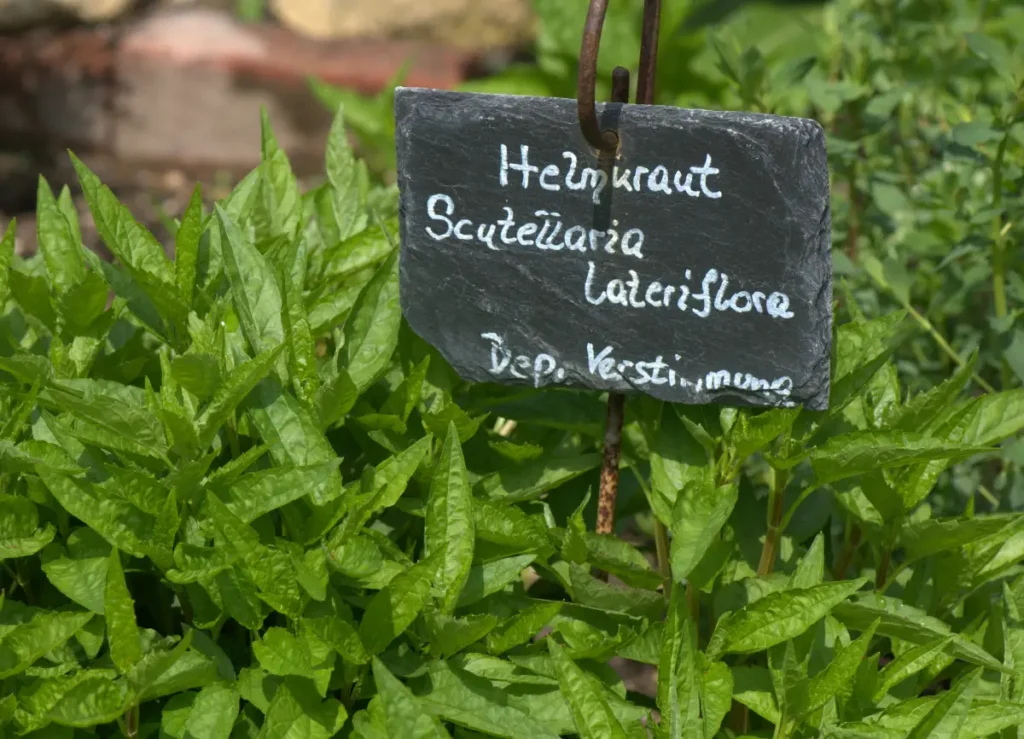 Helmkraut
Scutellaria
Lateriflora
Dep. Verstimmung